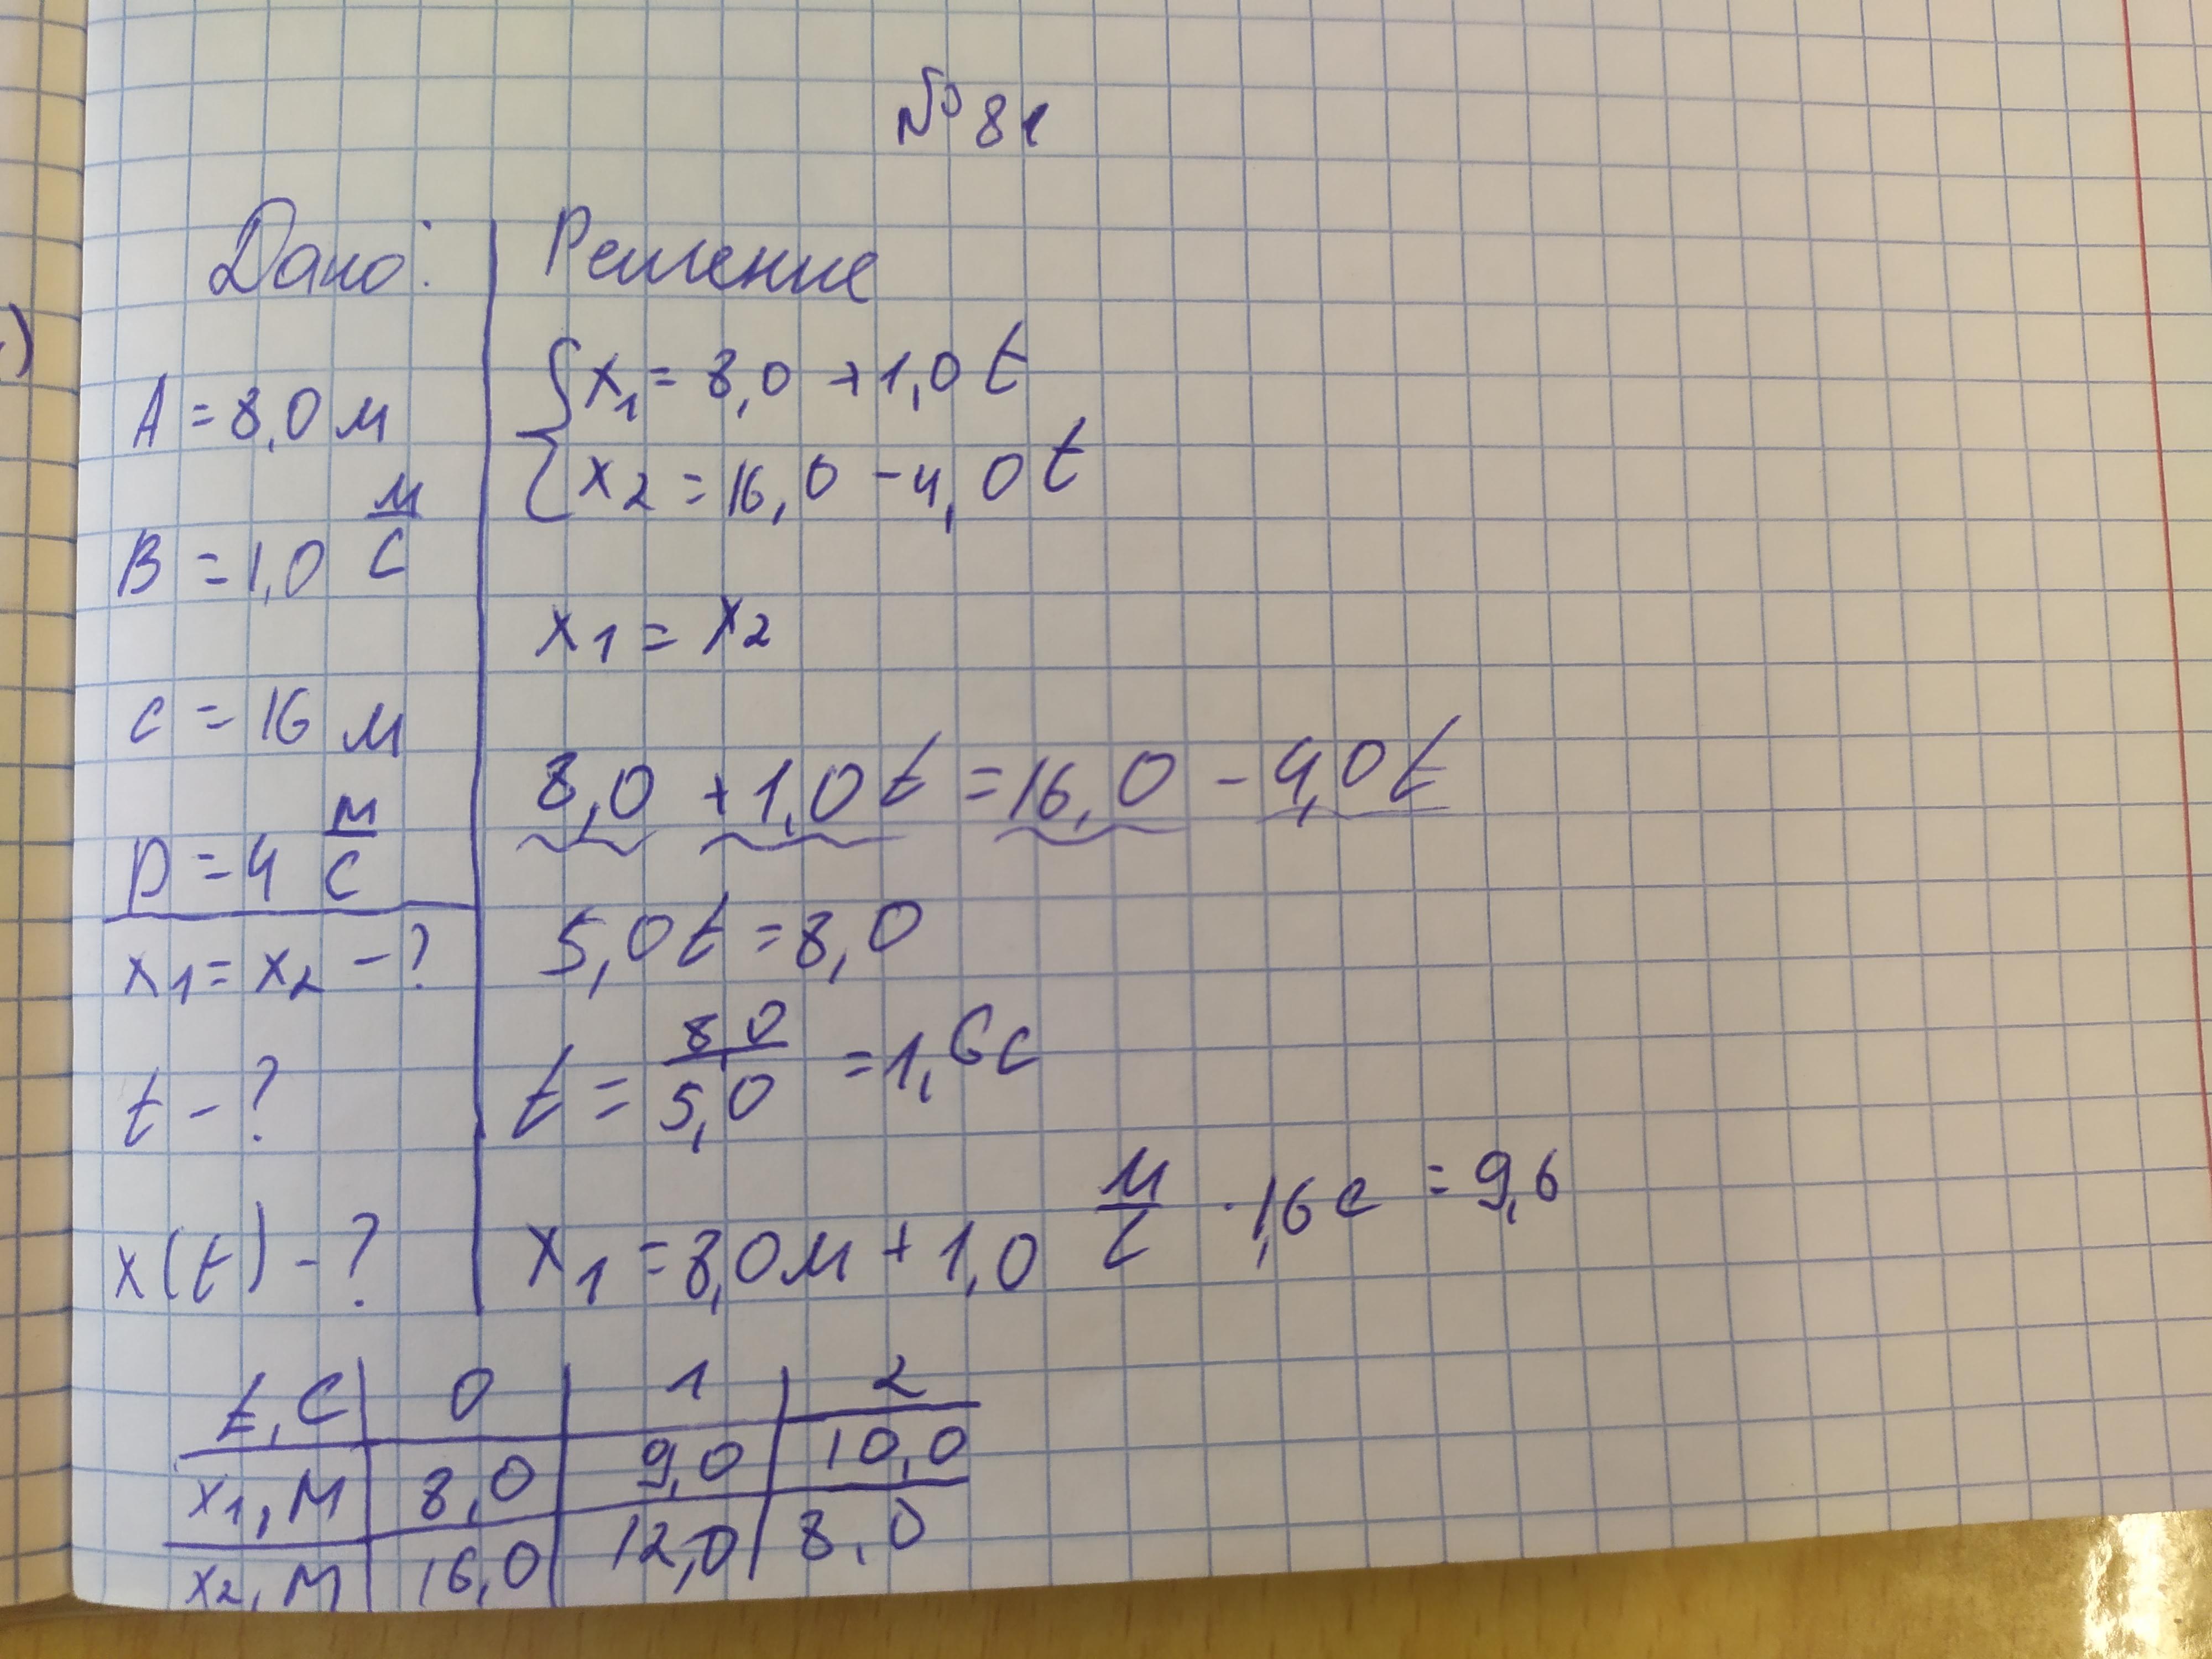 № 81
Дано:
A = 8,0 м
B = 1,0 м/с
c = 16 м
D = 4 м/с
x₁ = x₂ - ?
t - ?
x(t) - ?
Решение
{ x₁ = 8,0 + 1,0 t
{ x₂ = 16,0 - 4,0 t
x₁ = x₂
8,0 + 1,0 t = 16,0 - 4,0 t
5,0 t = 8,0
t = 8,0/5,0 = 1,6 с
x₁ = 8,0 м + 1,0 м/с · 1,6 с = 9,6
t, c | 0 | 1 | 2
x₁, м | 8,0 | 9,0 | 10,0
x₂, м | 16,0 | 12,0 | 8,0